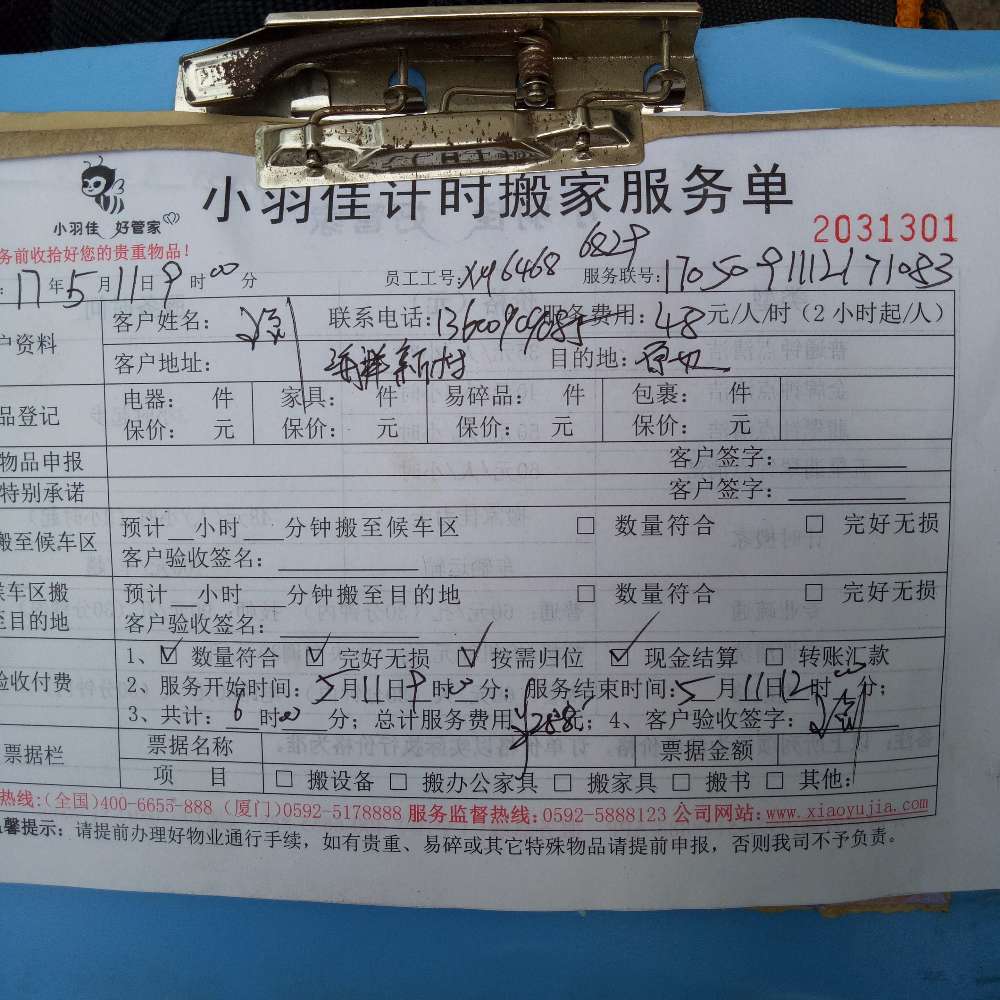 小羽佳计时搬家服务单
小羽佳 好管家
2031301
务前收拾好您的贵重物品!
6829
17年5月11日9时00分 员工工号:XY6468 服务联号:1705091112171083
户资料 客户姓名: 联系电话:13600909085 服务费用:48元/人/时(2小时起/人)
客户地址: 海洋新村 目的地:
品登记 电器: 件 家具: 件 易碎品: 件 包裹: 件
保价: 元 保价: 元 保价: 元 保价: 元
物品申报 客户签字:
特别承诺 客户签字:
搬至候车区 预计 小时 分钟搬至候车区 □ 数量符合 □ 完好无损
客户验收签名:
车区搬 预计 小时 分钟搬至目的地 □ 数量符合 □ 完好无损
至目的地 客户验收签名:
验收付费 1、☑ 数量符合 ☑ 完好无损 ☑ 按需归位 ☑ 现金结算 □ 转账汇款
2、服务开始时间:5月11日9时00分; 服务结束时间:5月11日12时00分;
3、共计:6时00分;总计服务费用¥288元;4、客户验收签字:
票据栏 票据名称 票据金额
项 目 □ 搬设备 □ 搬办公家具 □ 搬家具 □ 搬书 □ 其他:
热线:(全国)400-6655-888 (厦门)0592-5178888 服务监督热线:0592-5888123 公司网站:www.xiaoyujia.com
馨提示:请提前办理好物业通行手续,如有贵重、易碎或其它特殊物品请提前申报,否则我司不予负责。